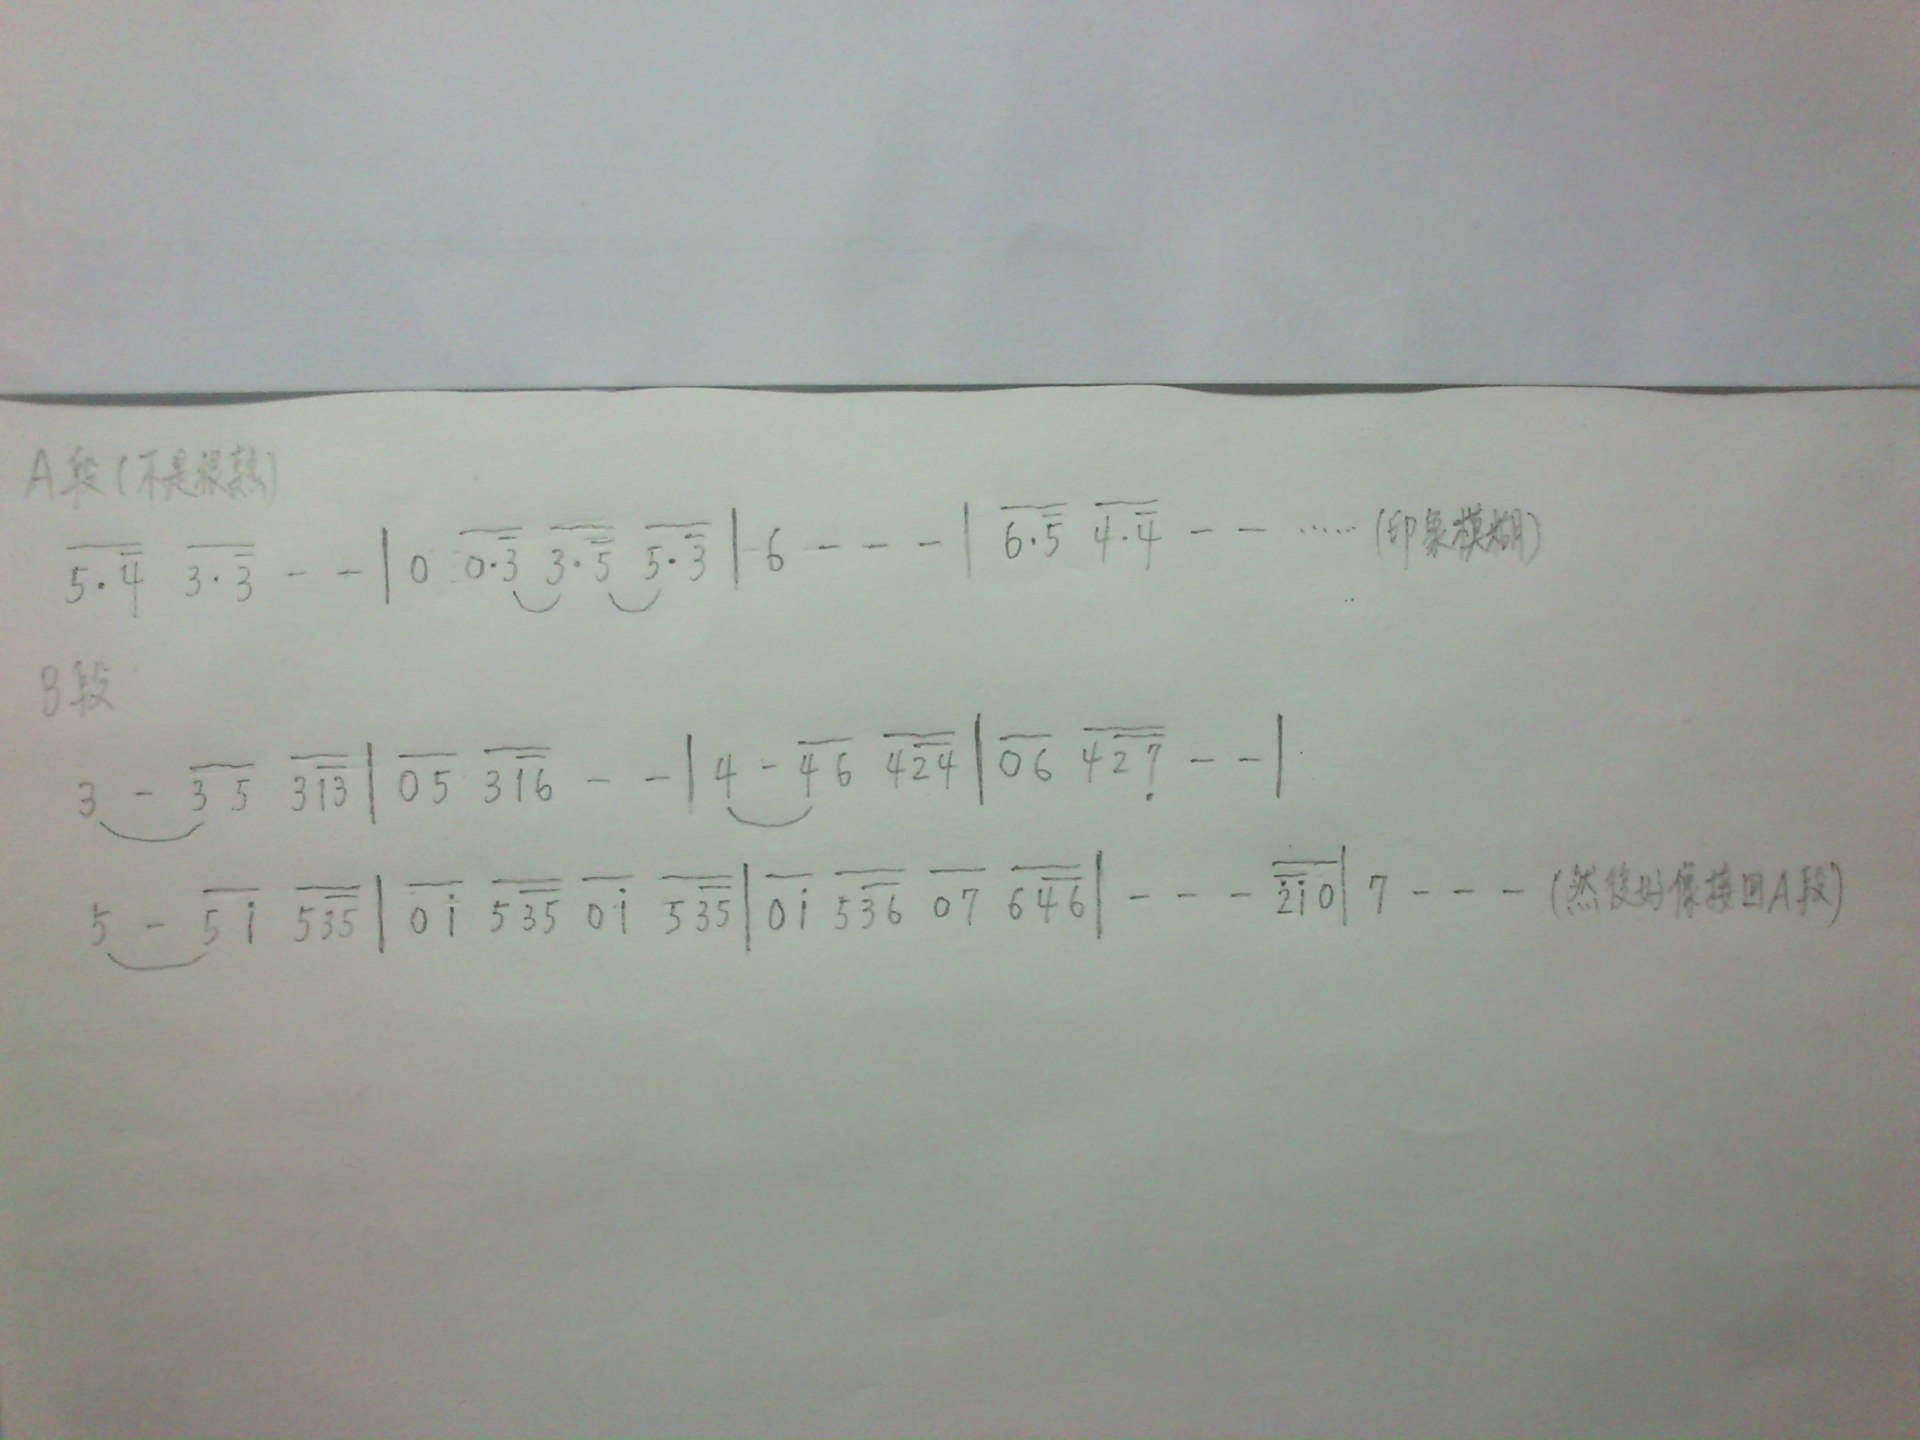 A段(不是很熟)
5.4 3.3 - - | 0 0.3 3.5 5.3 | 6 - - - | 6.5 4.4 - - ..... (印象模糊)
B段
3 - 35 313 | 05 316 - - | 4 - 46 424 | 06 427̣ - - |
5 - 5i 535 | 0i 535 0i 535 | 0i 536 07 646 | - - - 2̇i0 | 7 - - - (然後好像接回A段)